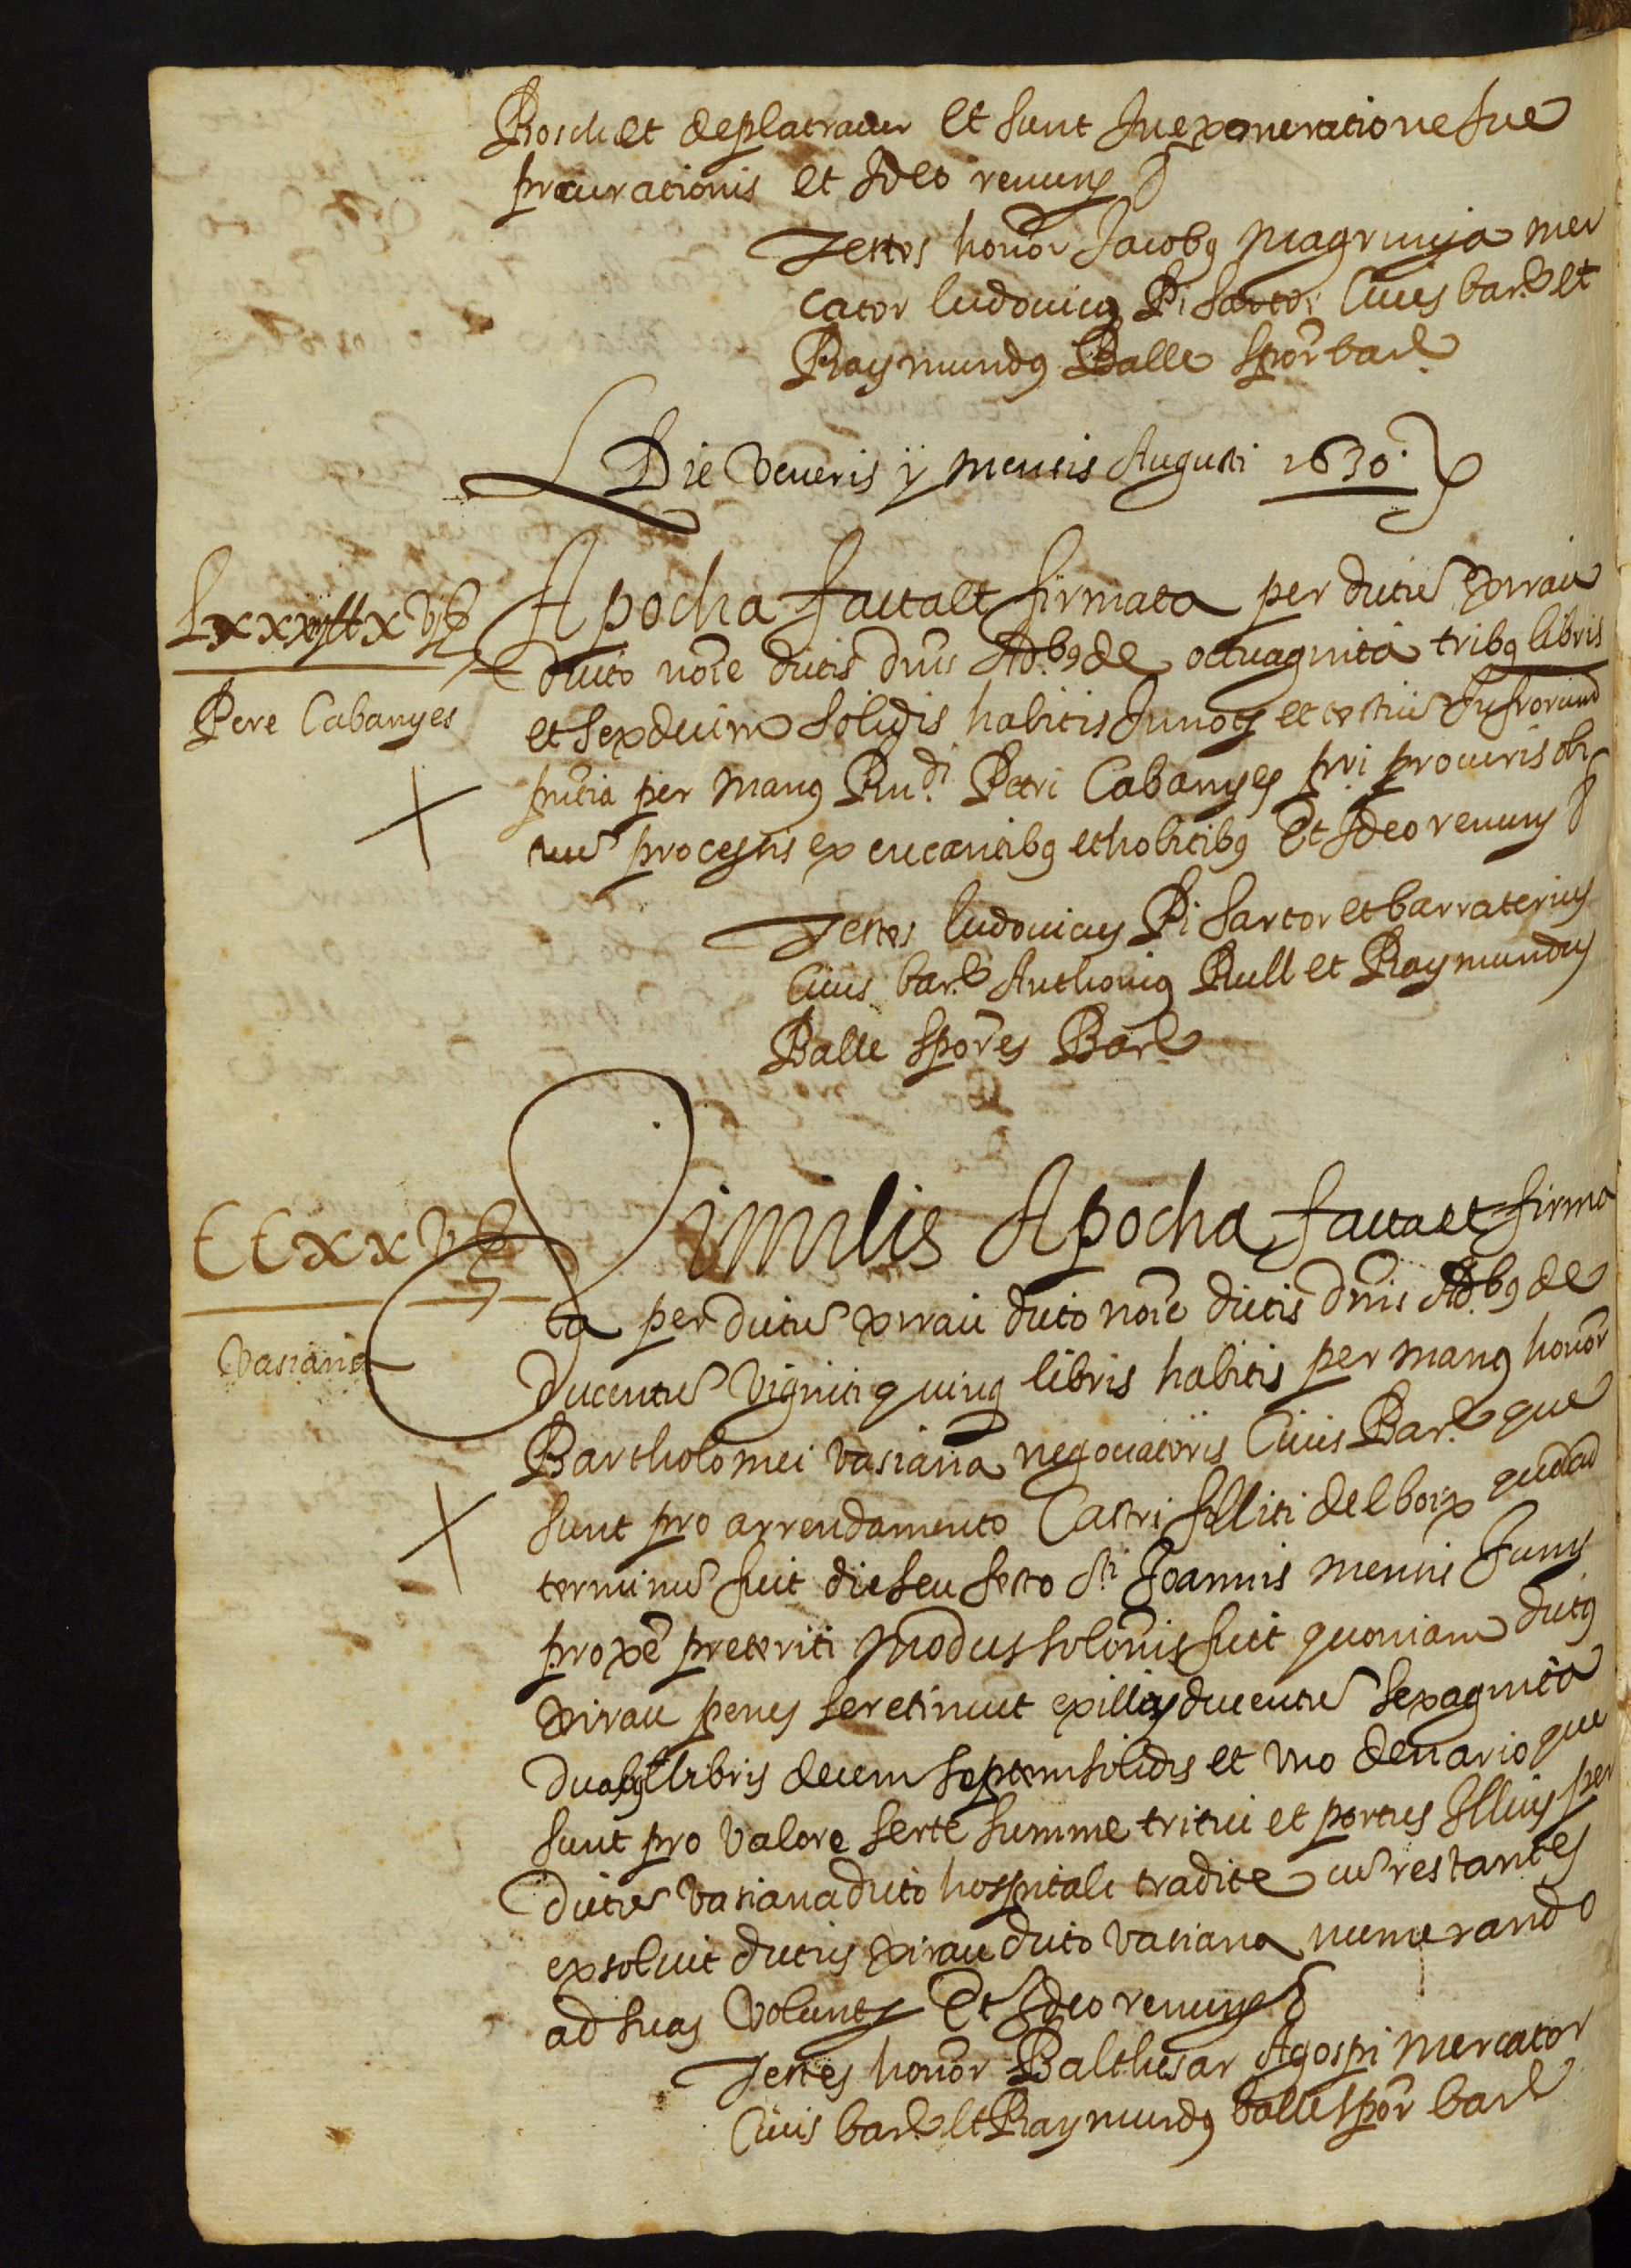 Bosch et de platraver et sunt In exoneratione sue
procurationis et Ideo renuns &
Testes honor Jacobus Magrinya mer
cator ludovicus Pi sartor Cives bar.e et
Raymundus Balle spor bar.e
Die Veneris ij mensis Augusti 1630.
Lxxxiij ll xvj ß
Pere Cabanyes
Apocha facta et firmata per dictu Xirrau
dicto noie dictis dnis Ad.bus de octuaginta tribus libris
et sexdecim solidis habitis
per manus Rndi. Petri Cabanyes pri. procuris
processis Et Ideo renuns &
Testes ludovicus Pi sartor et barraterius
Civis bar.e Anthonius Rull et Raymundus
Balle spores Bar.e
CCxxv ll
Vasiana
Similis Apocha facta et firma
ta per dictu Xirrau dicto noie dictis dnis Ad.bus de
Ducentis viginti quinq libris habitis per manus honor
Bartholomei Vasiana negociatoris Civis Bar.e que
sunt pro arrendamento Castri selliti del boix
terminus fuit die seu festo Sti Joannis mensis Junij
proxe preteriti Modus solonis fuit quoniam dictus
Xirau penes se retinuit ex illis ducentis sexaginta
duabus libris decem septem solidis et uno denario que
sunt pro valore serte summe tritici et portus Illius per
dictu Vasiana dicto hospitali tradite restantes
exsolvit dictus Xirau dicto Vasiana numerando
ad suas volunts Et Ideo renuns &
Testes honor Balthesar Agospi Mercator
Civis bar.e et Raymundus balle spor bar.e